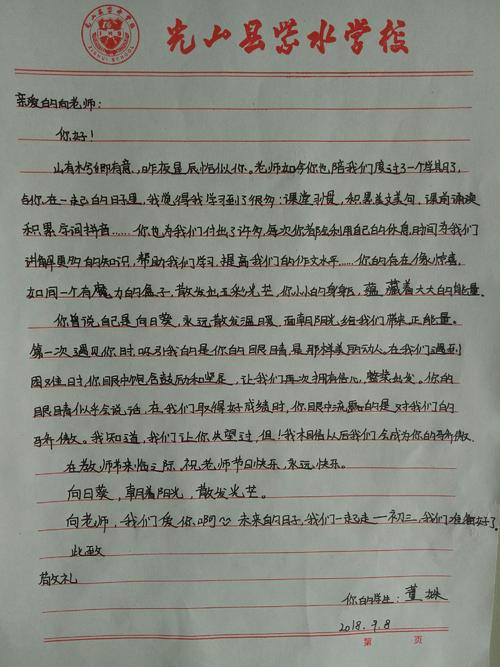 光山县紫水学校
ZISHUI SCHOOL
亲爱的向老师:
你好!
山有木兮卿有意,昨夜星辰恰似你。老师如今你也陪我们度过了一个学期了,
与你在一起的日子里,我觉得我学到了很多:课堂,积累美文美句,课前诵读
积累字词拼音……你也为我们付出了许多,每次你都会利用自己的休息时间为我们
讲解更多的知识,帮助我们学习,提高我们的作文水平……你的存在像惊喜,
如同一个有魔力的盒子,散发出五彩光芒,你小小的身躯,蕴藏着大大的能量。
你曾说,自己是向日葵,永远散发温暖,面朝阳光给我们带来正能量。
第一次遇见你时,吸引我的是你的眼睛,是那样美丽动人。在我们遇到
困难时,你眼中饱含鼓励和坚定,让我们再次拥有信心,整装出发。你的
眼睛似乎会说话,在我们取得好成绩时,你眼中流露的是对我们的
骄傲。我知道,我们让你失望过,但我相信以后我们会成为你的骄傲。
在教师节来临之际,祝老师节日快乐,永远快乐。
向日葵,朝着阳光,散发光芒。
向老师,我们爱你啊~未来的日子,我们一起走—初三,我们准备好了。
此致
敬礼
你的学生:董姝
2018.9.8
第 页